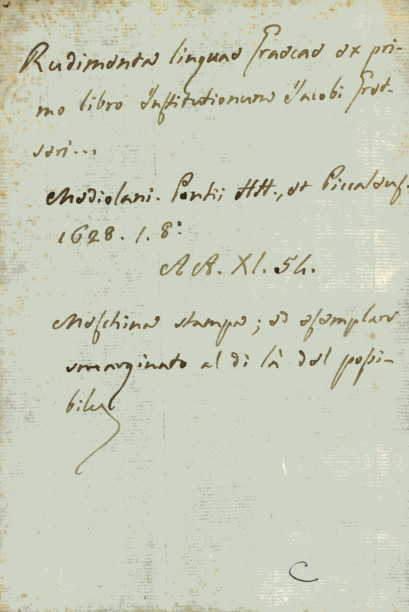 Rudimenta linguae Graecae ex pri-
mo libro Institutionum Jacobi Gret-
seri...
Mediolani. Pontii HH., et Piccaleuf.
1628. 1. 8:
AA. XI. 54.
Meschina stampa; ed esemplare
smarginato al di là del possi-
bile
C